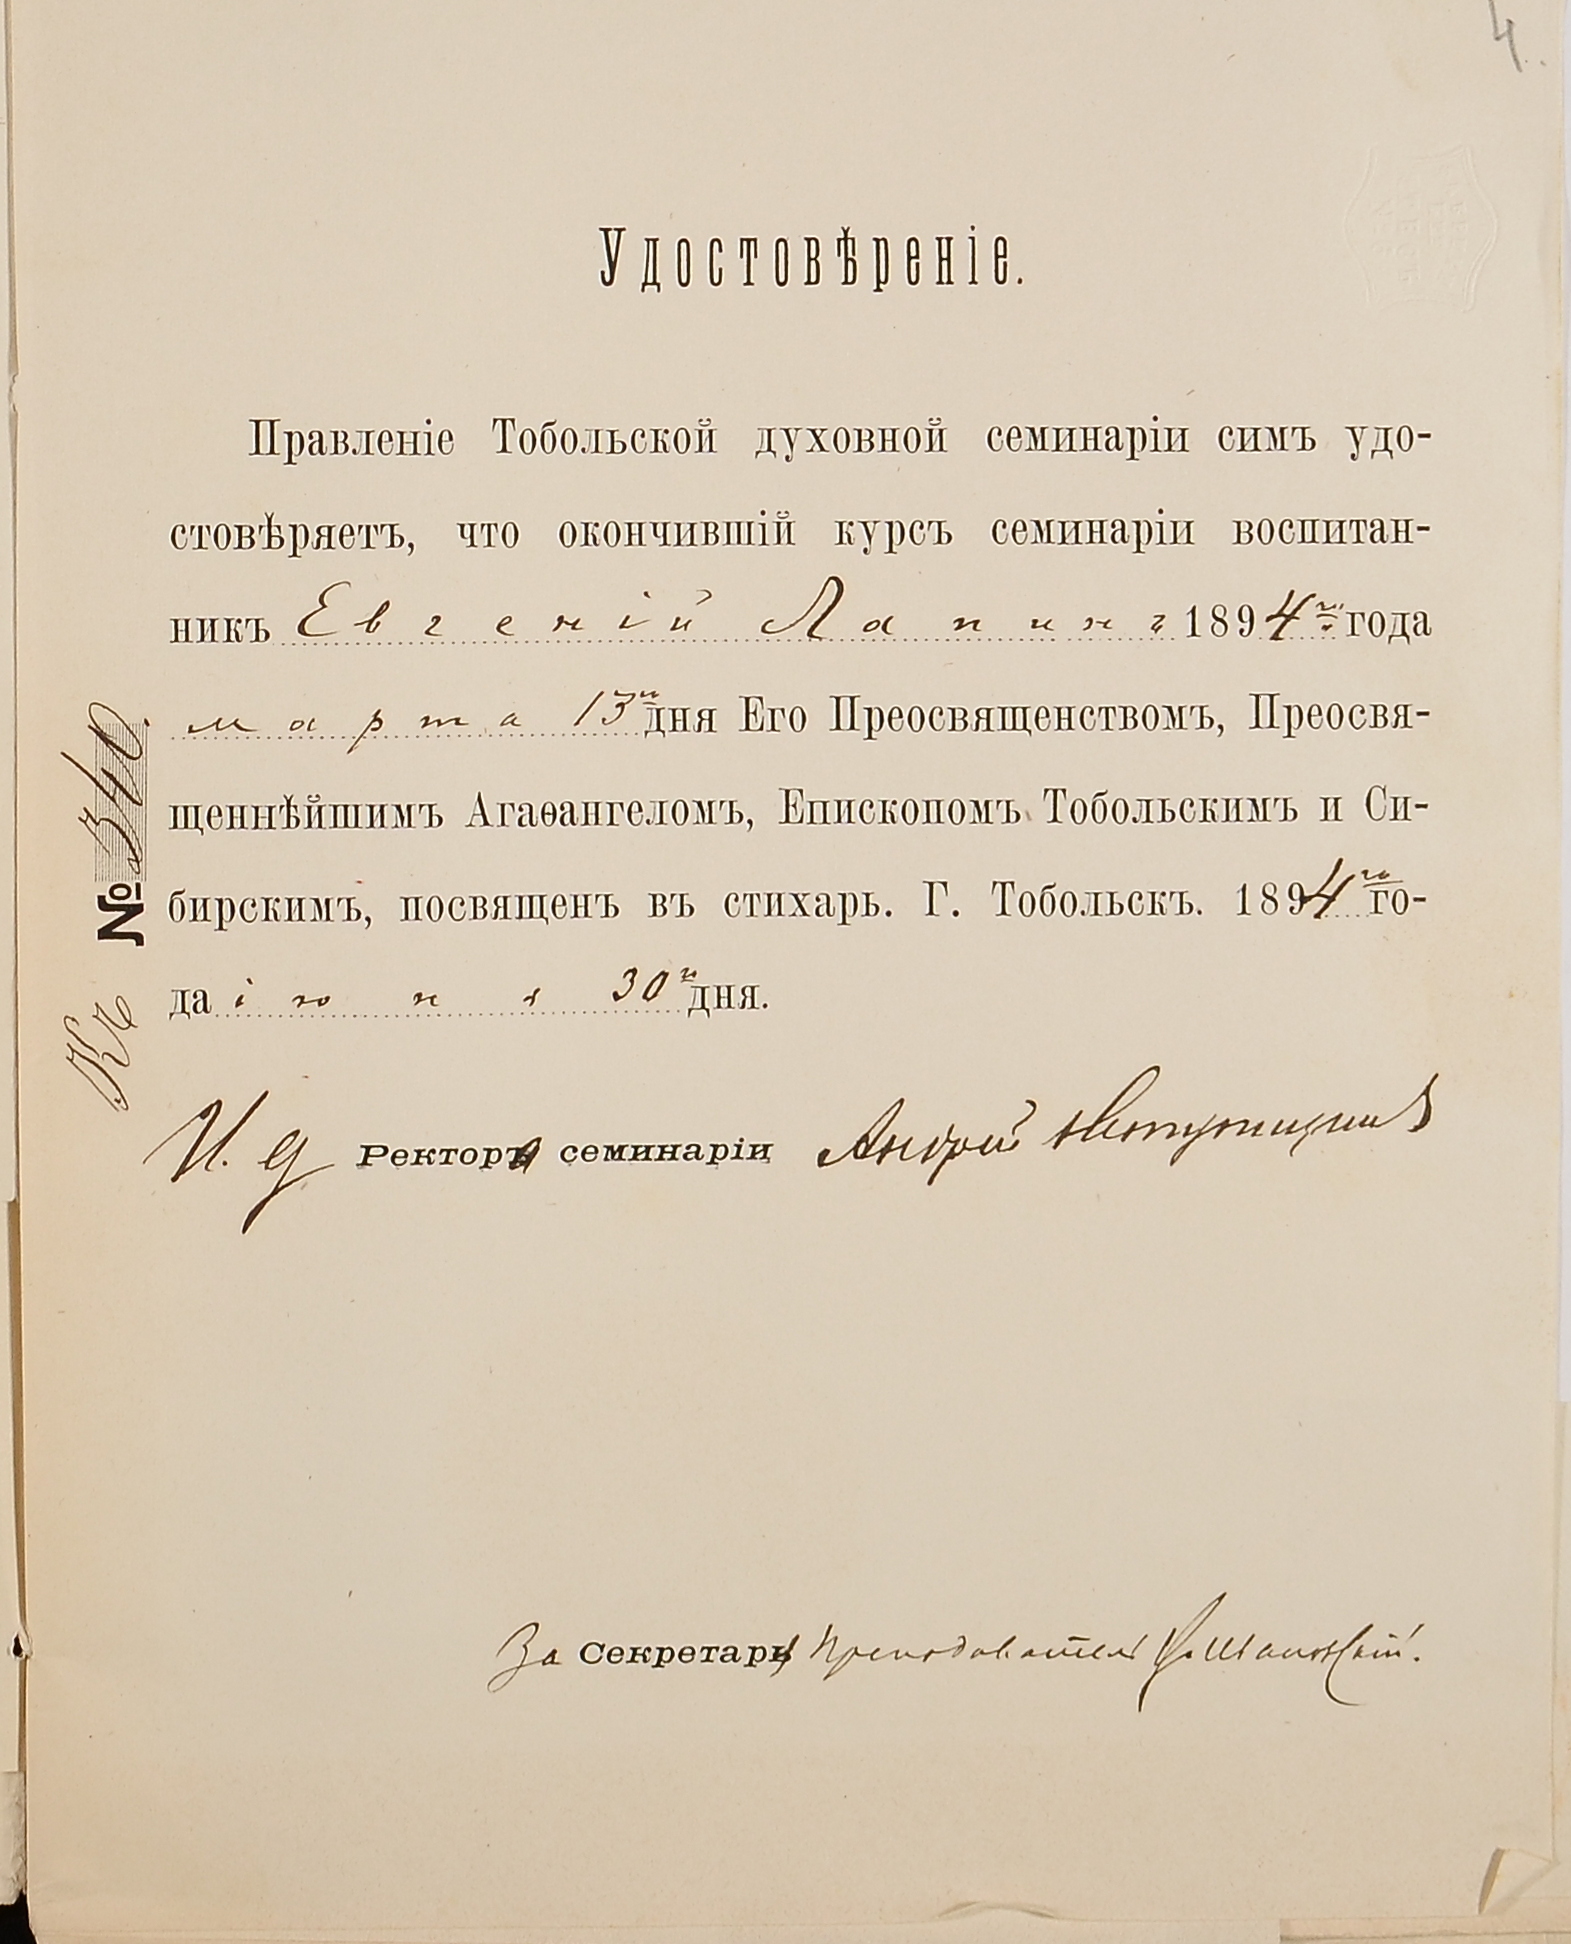 4.
Удостовѣреніе.
Правленіе Тобольской духовной семинаріи симъ удо-
стовѣряетъ, что окончившій курсъ семинаріи воспитан-
никъ Евгеній Лапинъ 1894го года
марта 13го дня Его Преосвященствомъ, Преосвя-
щеннѣйшимъ Агаѳангеломъ, Епископомъ Тобольскимъ и Си-
бирскимъ, посвященъ въ стихарь. Г. Тобольскъ. 1894го го-
да іюня 30го дня.
Къ № 340.
И. д Ректора семинаріи Андрей
За Секретаря Преподаватель